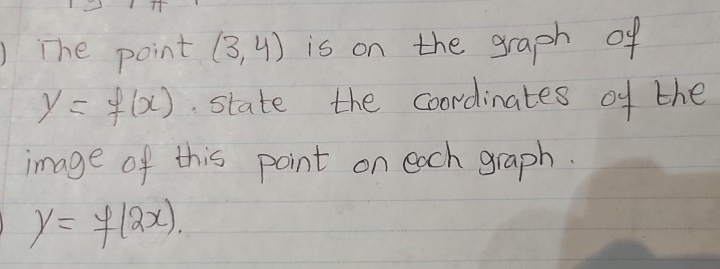 ) The point (3,4) is on the graph of
y = f(x). state the coordinates of the
image of this point on each graph.
) y = f(2x).